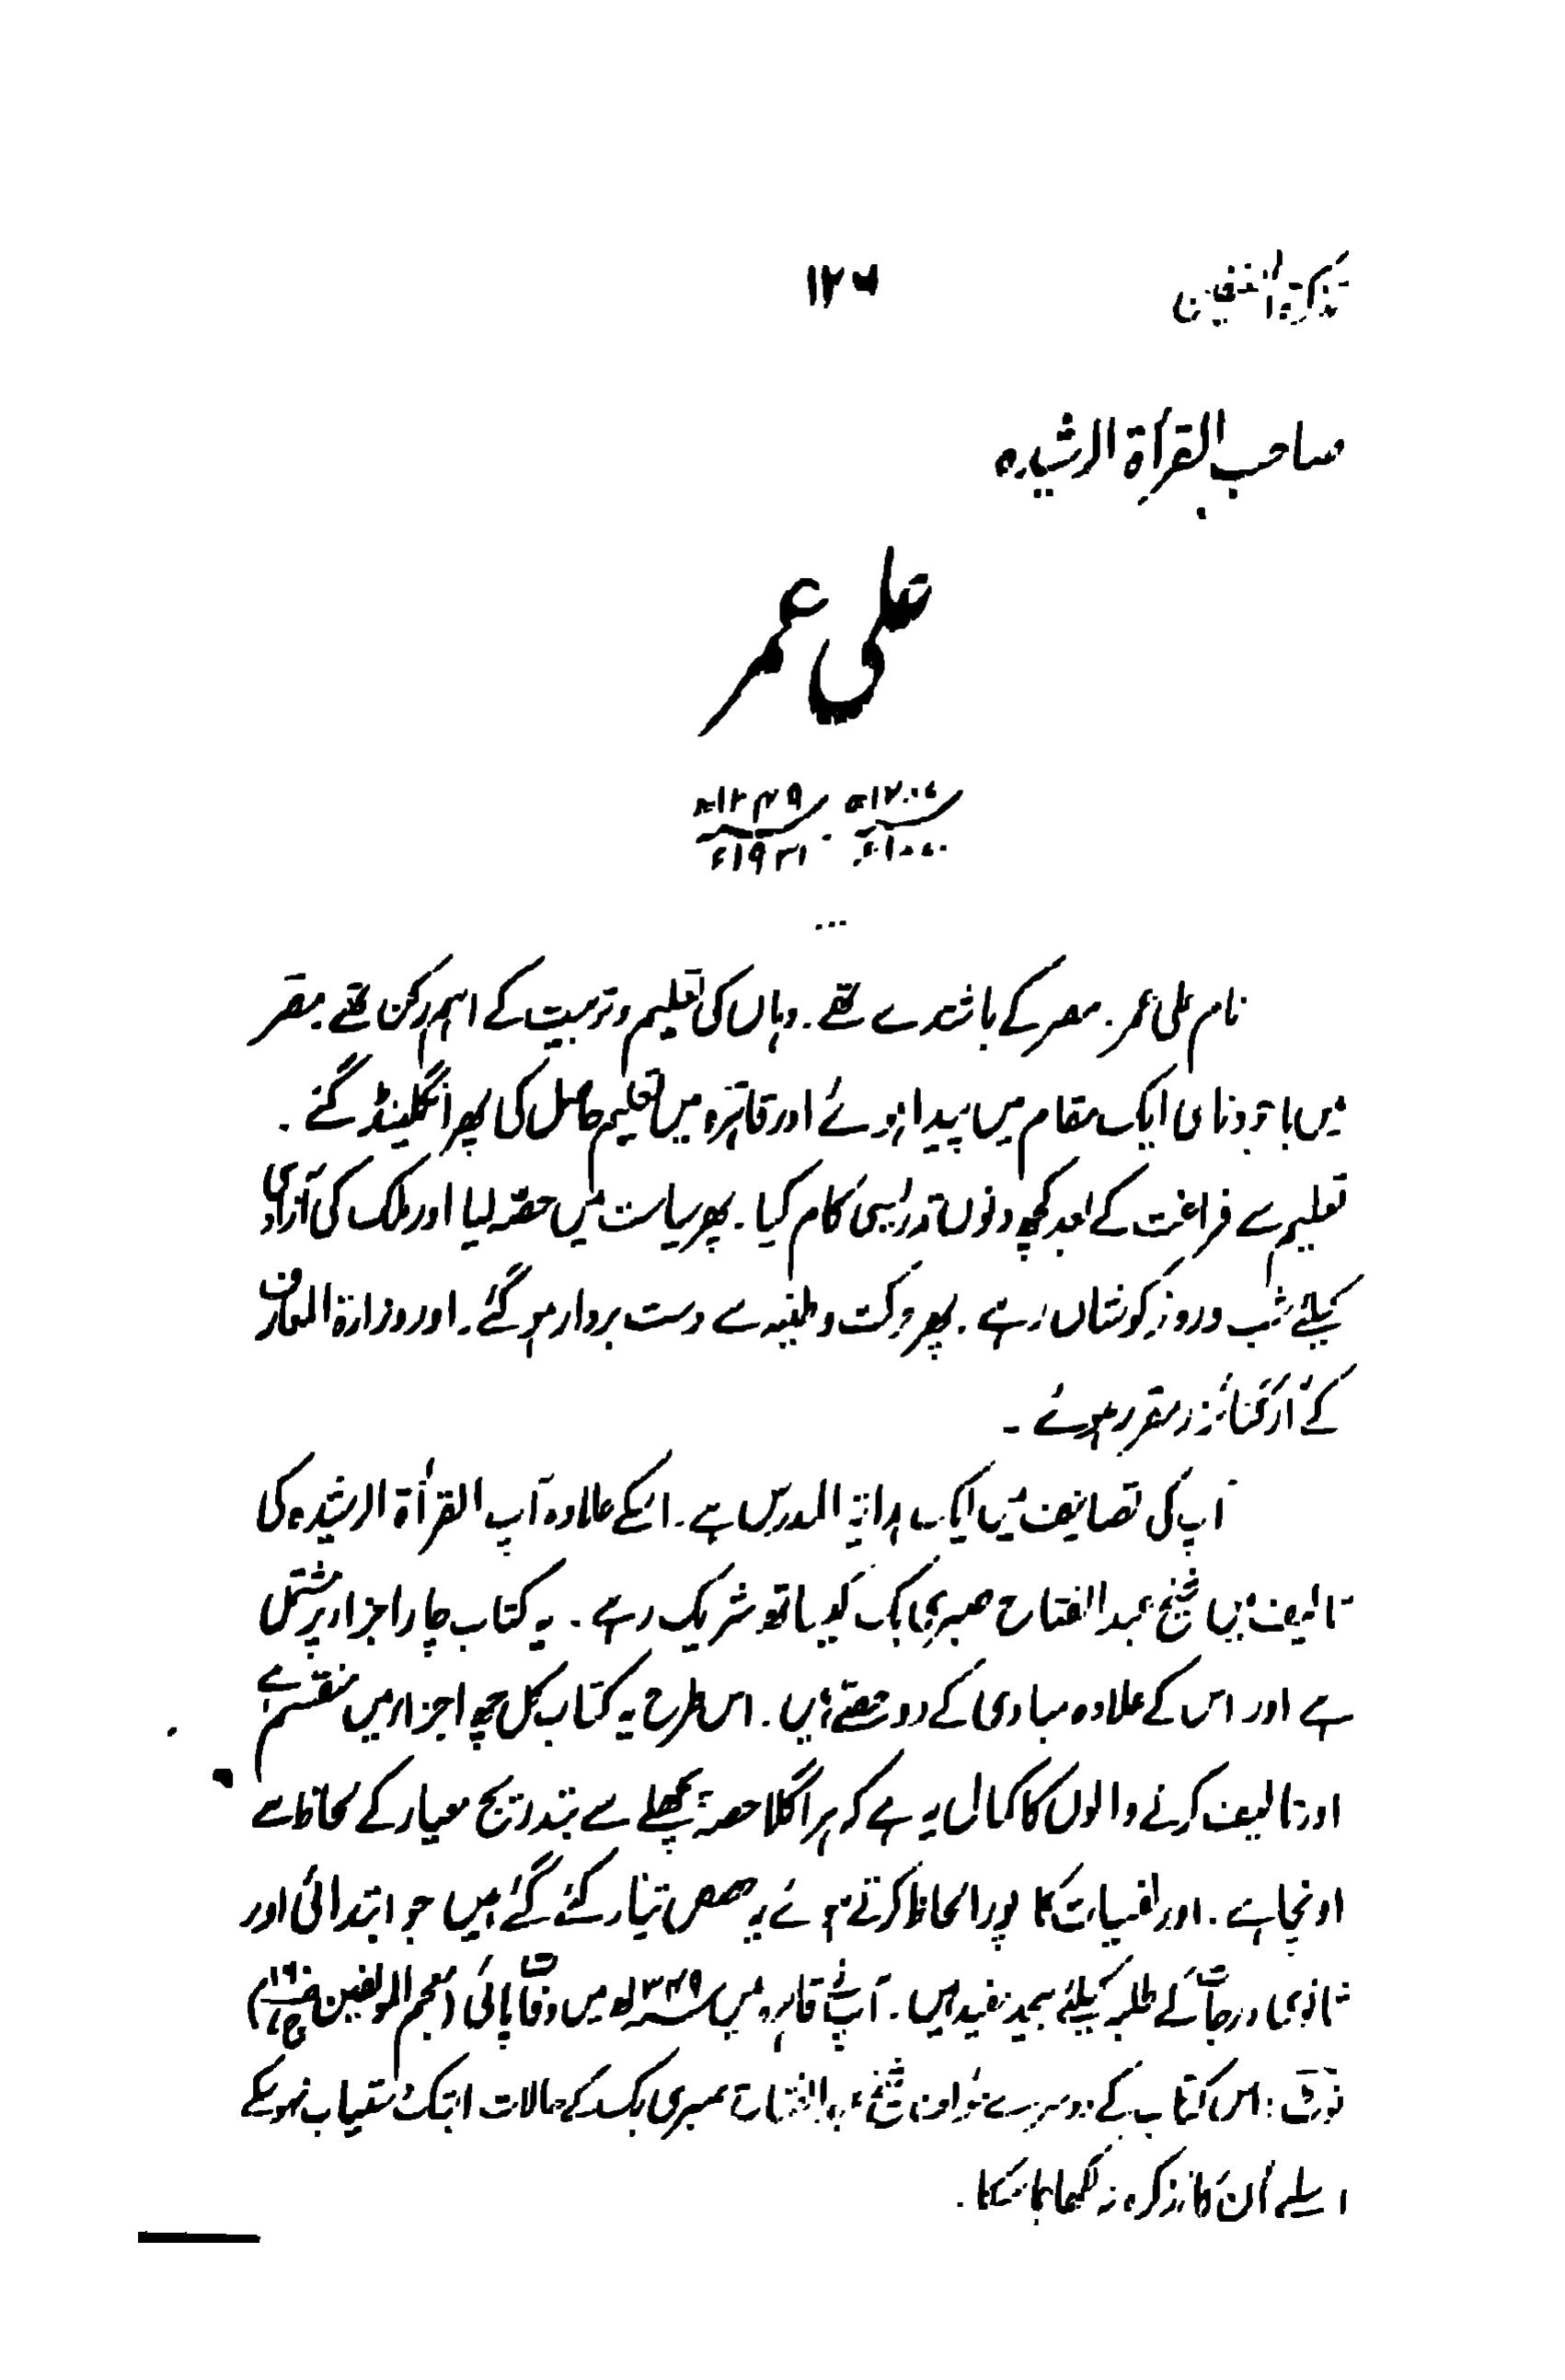 تذکرۃ المصنفین ۱۲۶
صاحب القرأۃ الرشیدہ
علی عمر
۱۳۴۹ھ
۱۹۳۱ء
نام علی عمر. مصر کے باشندے تھے. وہاں کی تعلیم و تربیت کے اہم رکن تھے. مصر
میں نامی ایک مقام میں پیدا ہوئے اور قاہرہ میں تعلیم حاصل کی پھر انگلینڈ گئے.
تعلیم سے فراغت کے بعد کچھ دنوں تدریسی کام کیا. پھر سیاست میں حصہ لیا اور ملک کی آزادی
کیلئے شب و روز کوشاں رہے. پھر حرکت وطنیہ سے دست بردار ہو گئے. اور وزارۃ المعارف
کے مقرر ہوئے۔
آپ کی تصانیف میں ایک ہدایۃ المدرس ہے. اسکے علاوہ آپ القرأۃ الرشیدہ کی
تالیف میں شیخ عبد الفتاح صبری بک کیساتھ شریک رہے. یہ کتاب چار اجزاء پر مشتمل
ہے اور اس کے علاوہ مبادی کے دو حصے ہیں. اس طرح یہ کتاب کل چھ اجزاء میں منقسم ہے
اور تالیف کرنے والوں کا کمال یہ ہے کہ ہر اگلا حصہ پچھلے سے بتدریج معیار کے لحاظ سے
اونچا ہے. اور نفسیات کا پورا لحاظ کرتے ہوئے یہ حصص تیار کئے گئے ہیں جو ابتدائی اور
ثانوی درجات کے طلبہ کیلئے بیحد مفید ہیں. آپ نے قاہرہ میں ۱۳۴۹ھ میں وفات پائی (معجم المولفین
نوٹ: اس کتاب کے دوسرے مؤلف شیخ عبد الفتاح صبری بک کے حالات ابتک دستیاب نہوسکے
اسلئے اُن کا تذکرہ نہ لکھا جا سکا.